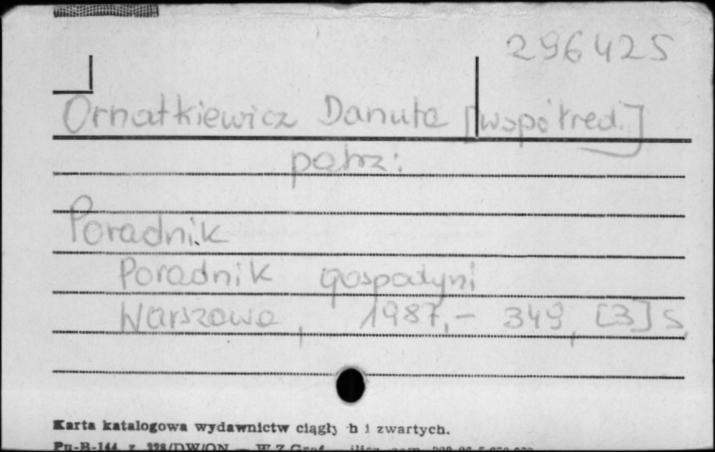 296425
Ornatkiewicz Danuta [współred.]
patrz:
Poradnik
Poradnik gospodyni
Warszawa, 1987,- 349, [3] s
Karta katalogowa wydawnictw ciągły h i zwartych.
Pu-B-144